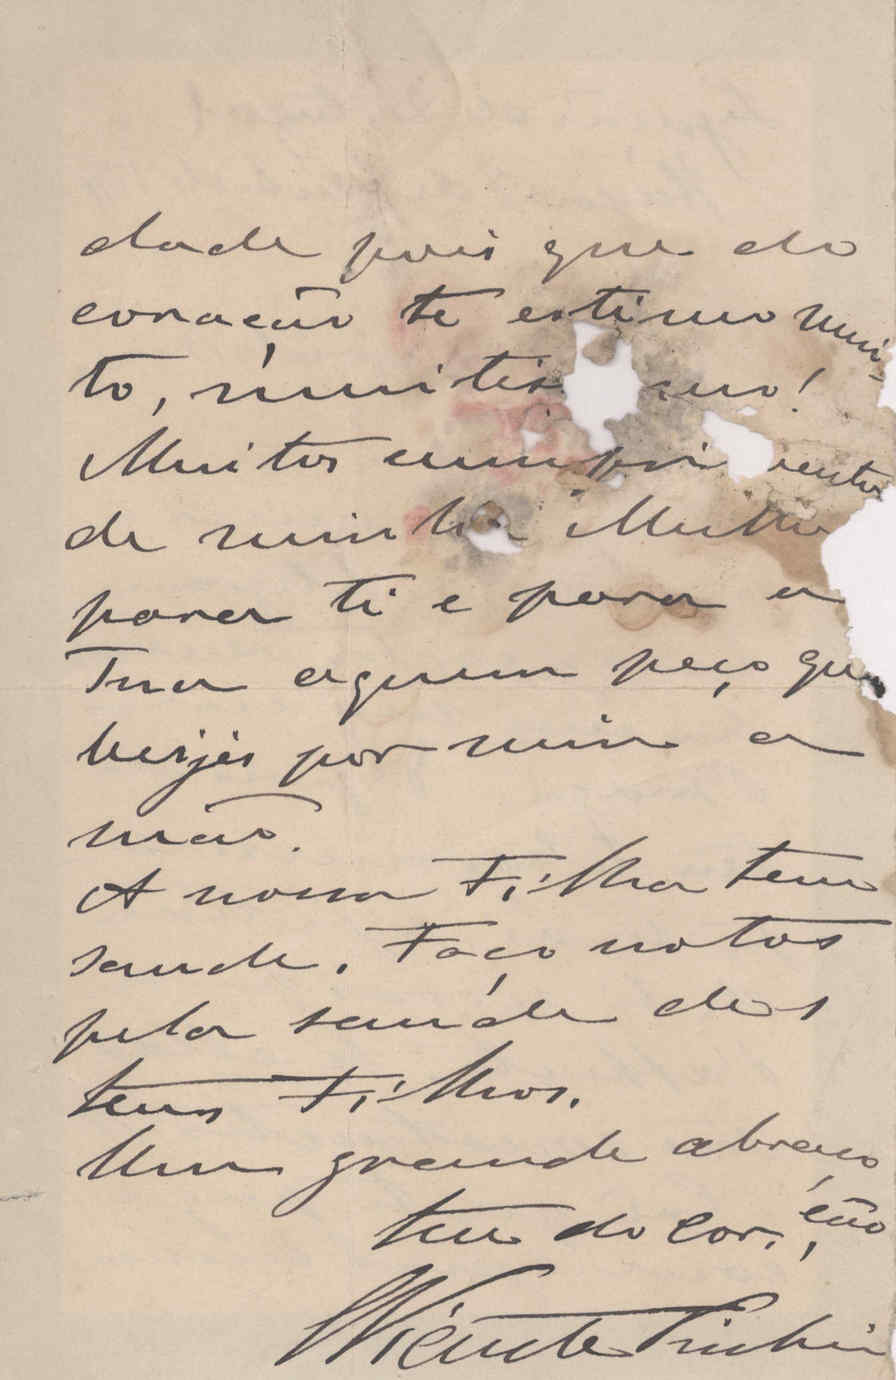 dade pois que do
coração te estimo mui-
to, muitis mo!
Muitos cumpri mentos
de minha Mulher
para ti e para a
Tua a quem peço que
beijes por mim a
mão.
A nossa Filha tem
saude. Faço votos
pela saúde dos
teus Filhos.
Um grande abraço
teu do cor.ção
Vicente